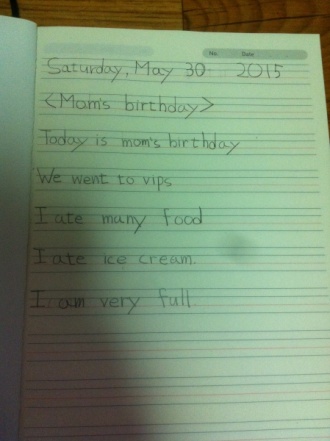 No. Date
Saturday, May 30 2015
<Mom's birthday>
Today is mom's birthday
We went to vips
I ate many food
I ate ice cream.
I am very full.